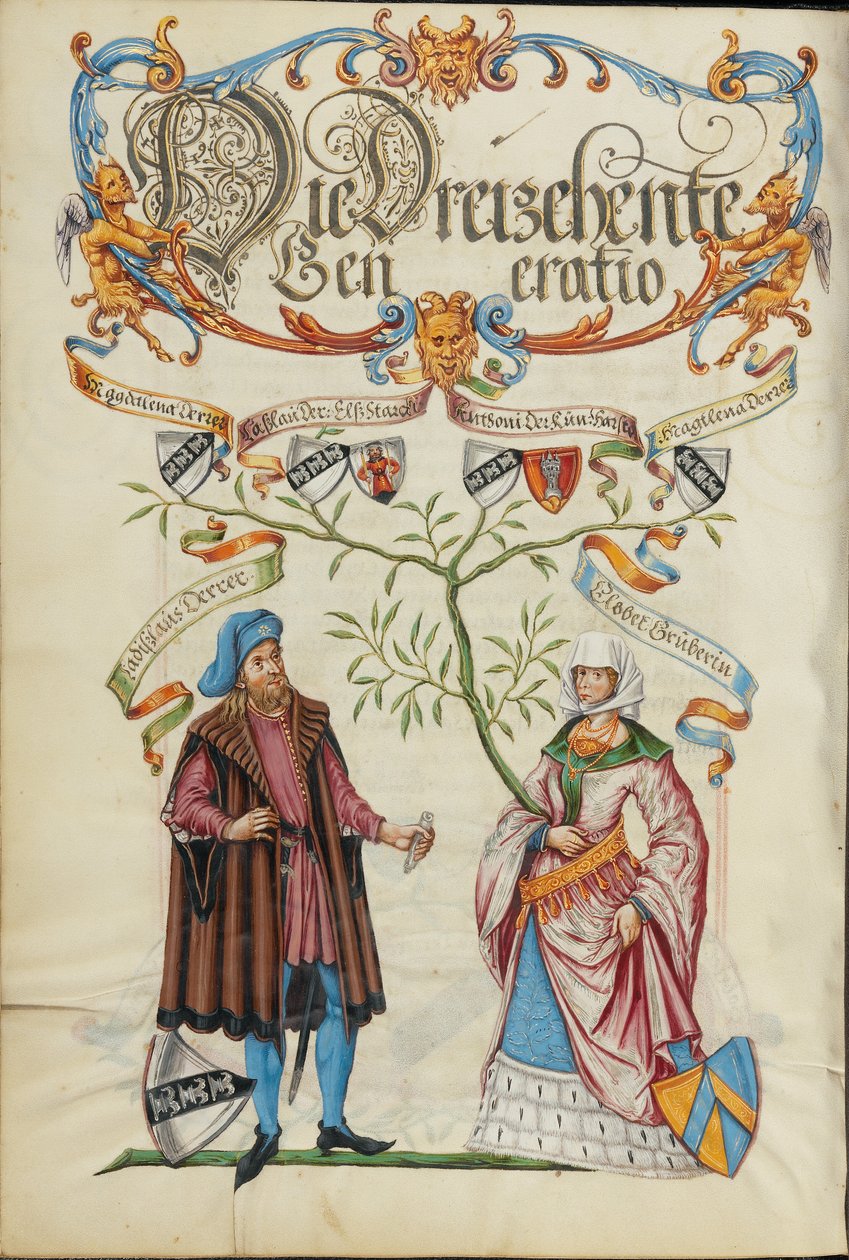 Die Dreizehente
Generatio
Magdalena Derrer
Laßlau Der: Elß Starcki
Anthoni Der Kün Harsd
Magtlena Derrer
Ladißlaus Derrer.
Elsbet Gruberin